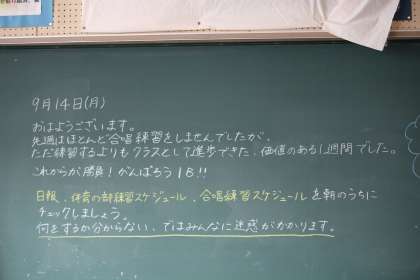 9月14日(月)
おはようございます。
先週はほとんど合唱練習をしませんでしたが、
ただ練習するよりもクラスとして進歩できた、価値のある1週間でした。
これからが勝負！がんばろう1B!!
日報、体育の部練習スケジュール、合唱練習スケジュールを朝のうちに
チェックしましょう。
何をするか分からない、ではみんなに迷惑がかかります。